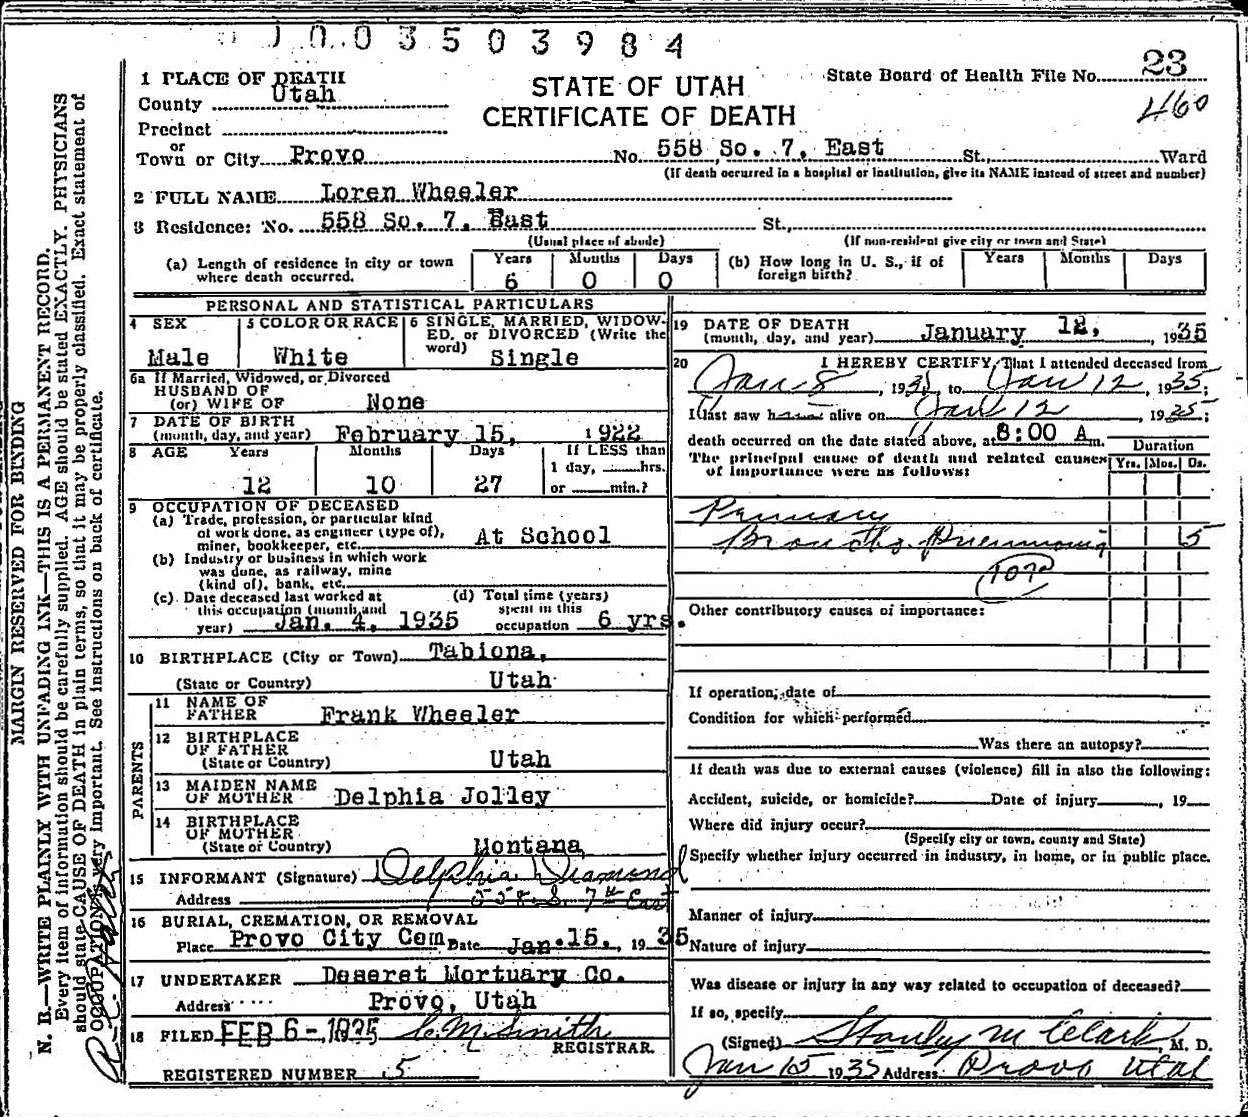 1003503984
1 PLACE OF DEATH
County Utah
Precinct
or
Town or City Provo No. 558 So. 7, East St., Ward
(If death occurred in a hospital or institution, give its NAME instead of street and number)
STATE OF UTAH
CERTIFICATE OF DEATH
State Board of Health File No. 23
460
2 FULL NAME Loren Wheeler
3 Residence: No. 558 So. 7, East St.,
(Usual place of abode) (If non-resident give city or town and State)
(a) Length of residence in city or town where death occurred. Years 6 Months 0 Days 0
(b) How long in U. S., if of foreign birth? Years Months Days
PERSONAL AND STATISTICAL PARTICULARS
4 SEX Male
5 COLOR OR RACE White
6 SINGLE, MARRIED, WIDOWED, or DIVORCED (Write the word) Single
6a If Married, Widowed, or Divorced
HUSBAND OF
(or) WIFE OF None
7 DATE OF BIRTH
(month, day, and year) February 15, 1922
8 AGE Years 12 Months 10 Days 27 If LESS than
1 day, hrs.
or min.?
9 OCCUPATION OF DECEASED
(a) Trade, profession, or particular kind
of work done, as engineer (type of),
miner, bookkeeper, etc. At School
(b) Industry or business in which work
was done, as railway, mine
(kind of), bank, etc.
(c) Date deceased last worked at
this occupation (month and
year) Jan. 4, 1935
(d) Total time (years)
spent in this
occupation 6 yrs.
10 BIRTHPLACE (City or Town) Tabiona,
(State or Country) Utah
PARENTS
11 NAME OF
FATHER Frank Wheeler
12 BIRTHPLACE
OF FATHER
(State or Country) Utah
13 MAIDEN NAME
OF MOTHER Delphia Jolley
14 BIRTHPLACE
OF MOTHER
(State or Country) Montana
15 INFORMANT (Signature) Delphia Diamond
Address 558. S. 7th East
16 BURIAL, CREMATION, OR REMOVAL
Place Provo City Cem. Date Jan. 15, 1935
17 UNDERTAKER Deseret Mortuary Co.
Address Provo, Utah
18 FILED FEB 6 - 1935 C. M. Smith
REGISTRAR.
REGISTERED NUMBER 5
19 DATE OF DEATH
(month, day, and year) January 12, 1935
20 I HEREBY CERTIFY, That I attended deceased from
Jan 8, 193 to Jan 12, 1935;
I last saw h alive on Jan 12, 1935;
death occurred on the date stated above, at 8:00 A m.
The principal cause of death and related causes
of importance were as follows:
Duration
Yrs. Mos. Ds.
Primary
Broncho Pneumonia 5
107a
Other contributory causes of importance:
If operation, date of
Condition for which performed
Was there an autopsy?
If death was due to external causes (violence) fill in also the following:
Accident, suicide, or homicide? Date of injury , 19
Where did injury occur?
(Specify city or town, county and State)
Specify whether injury occurred in industry, in home, or in public place.
Manner of injury
Nature of injury
Was disease or injury in any way related to occupation of deceased?
If so, specify
(Signed) Stanley M Clark, M. D.
Jan 15 1935 Address Provo Utah
MARGIN RESERVED FOR BINDING
N. B.—WRITE PLAINLY WITH UNFADING INK—THIS IS A PERMANENT RECORD.
Every item of information should be carefully supplied. AGE should be stated EXACTLY. PHYSICIANS
should state CAUSE OF DEATH in plain terms, so that it may be properly classified. Exact statement of
OCCUPATION is very important. See instructions on back of certificate.